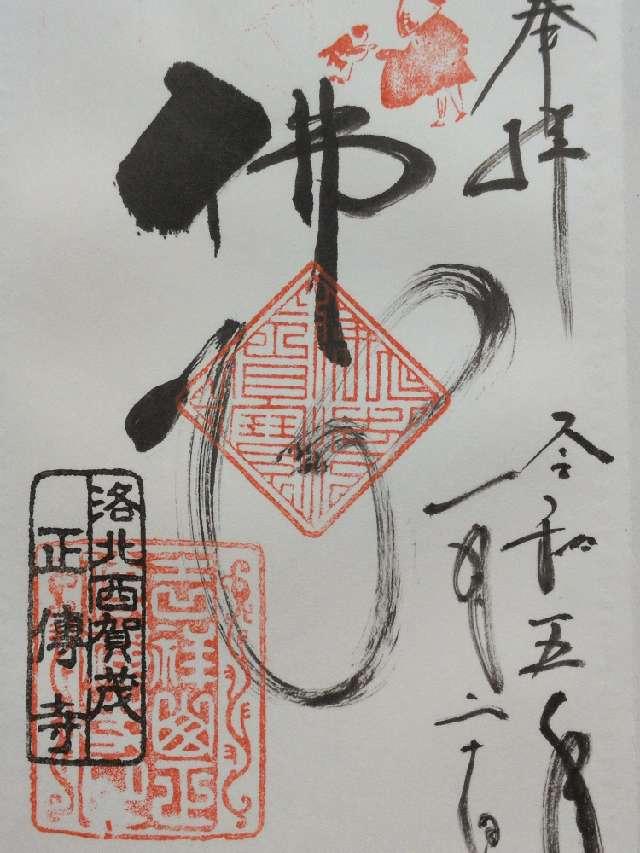 奉拝
令和五年
一月二十日
佛心
吉祥山正
洛北西賀茂
正傳寺